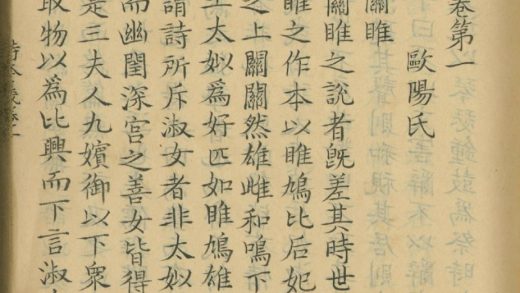 卷第一
歐陽氏
關雎
關雎之説者既差其時世
雎之作本以雎鳩比后妃
之上關關然雄雌和鳴下
王太姒為好匹如雎鳩雄
謂詩所斥淑女者非太姒
而幽閨深宮之善女皆得
是三夫人九嬪御以下衆
取物以為比興而下言淑